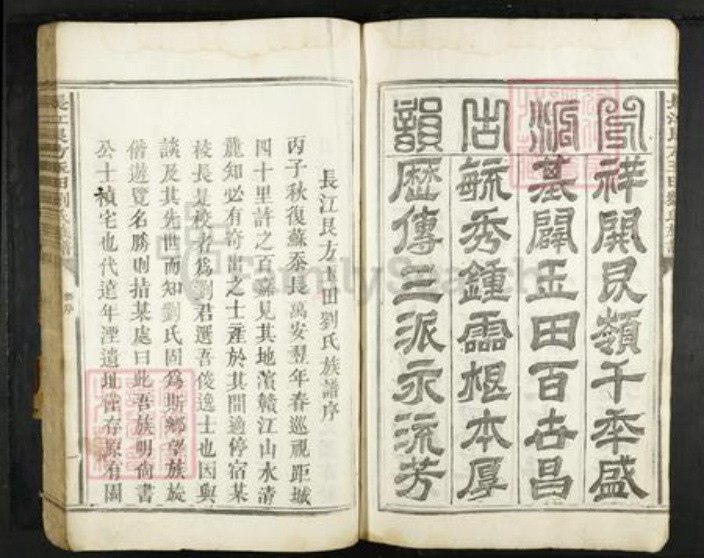 鳳祥開艮嶺千年盛
源基闢玉田百世昌
古毓秀鍾靈根本厚
韻歷傳三派永流芳
長江艮方玉田劉氏族譜
長江艮方玉田劉氏族譜序
丙子秋復蘇忝長萬安翌年春巡視距城
四十里許之百嘉見其地濱贛江山水清
麗知必有奇出之士產於其間適停宿某
校長是校者為劉君選吾俊逸士也因與
談及其先世而知劉氏固為斯鄉望族旋
偕遊覽名勝則指某處曰此吾族明尚書
公士禎宅也代遠年湮遺址僅存原有園
長江艮方玉田劉氏族譜
FamilySearch